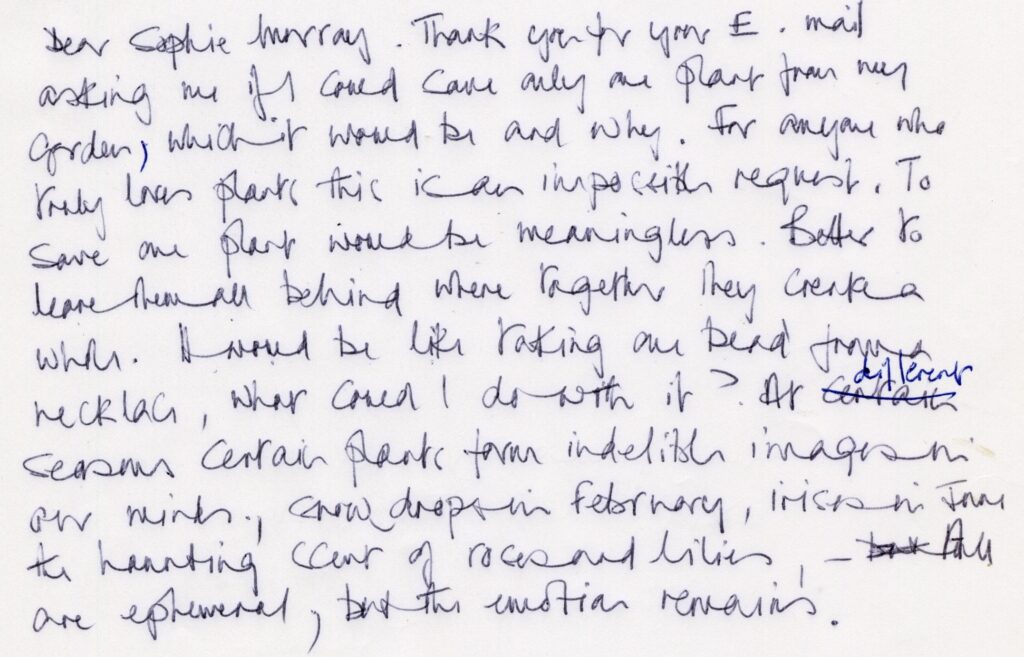 Dear Sophie Murray. Thank you for your E.mail
asking me if I could save only one plant from my
garden, which it would be and why. For anyone who
truly loves plants this is an impossible request. To
save one plant would be meaningless. Better to
leave them all behind where together they create a
whole. It would be like taking one bead from a
necklace, what could I do with it? At certain different
seasons certain plants form indelible images in
our minds., snowdrops in February, irises in June
the haunting scent of roses and lilies, – but All
are ephemeral, but the emotion remains.